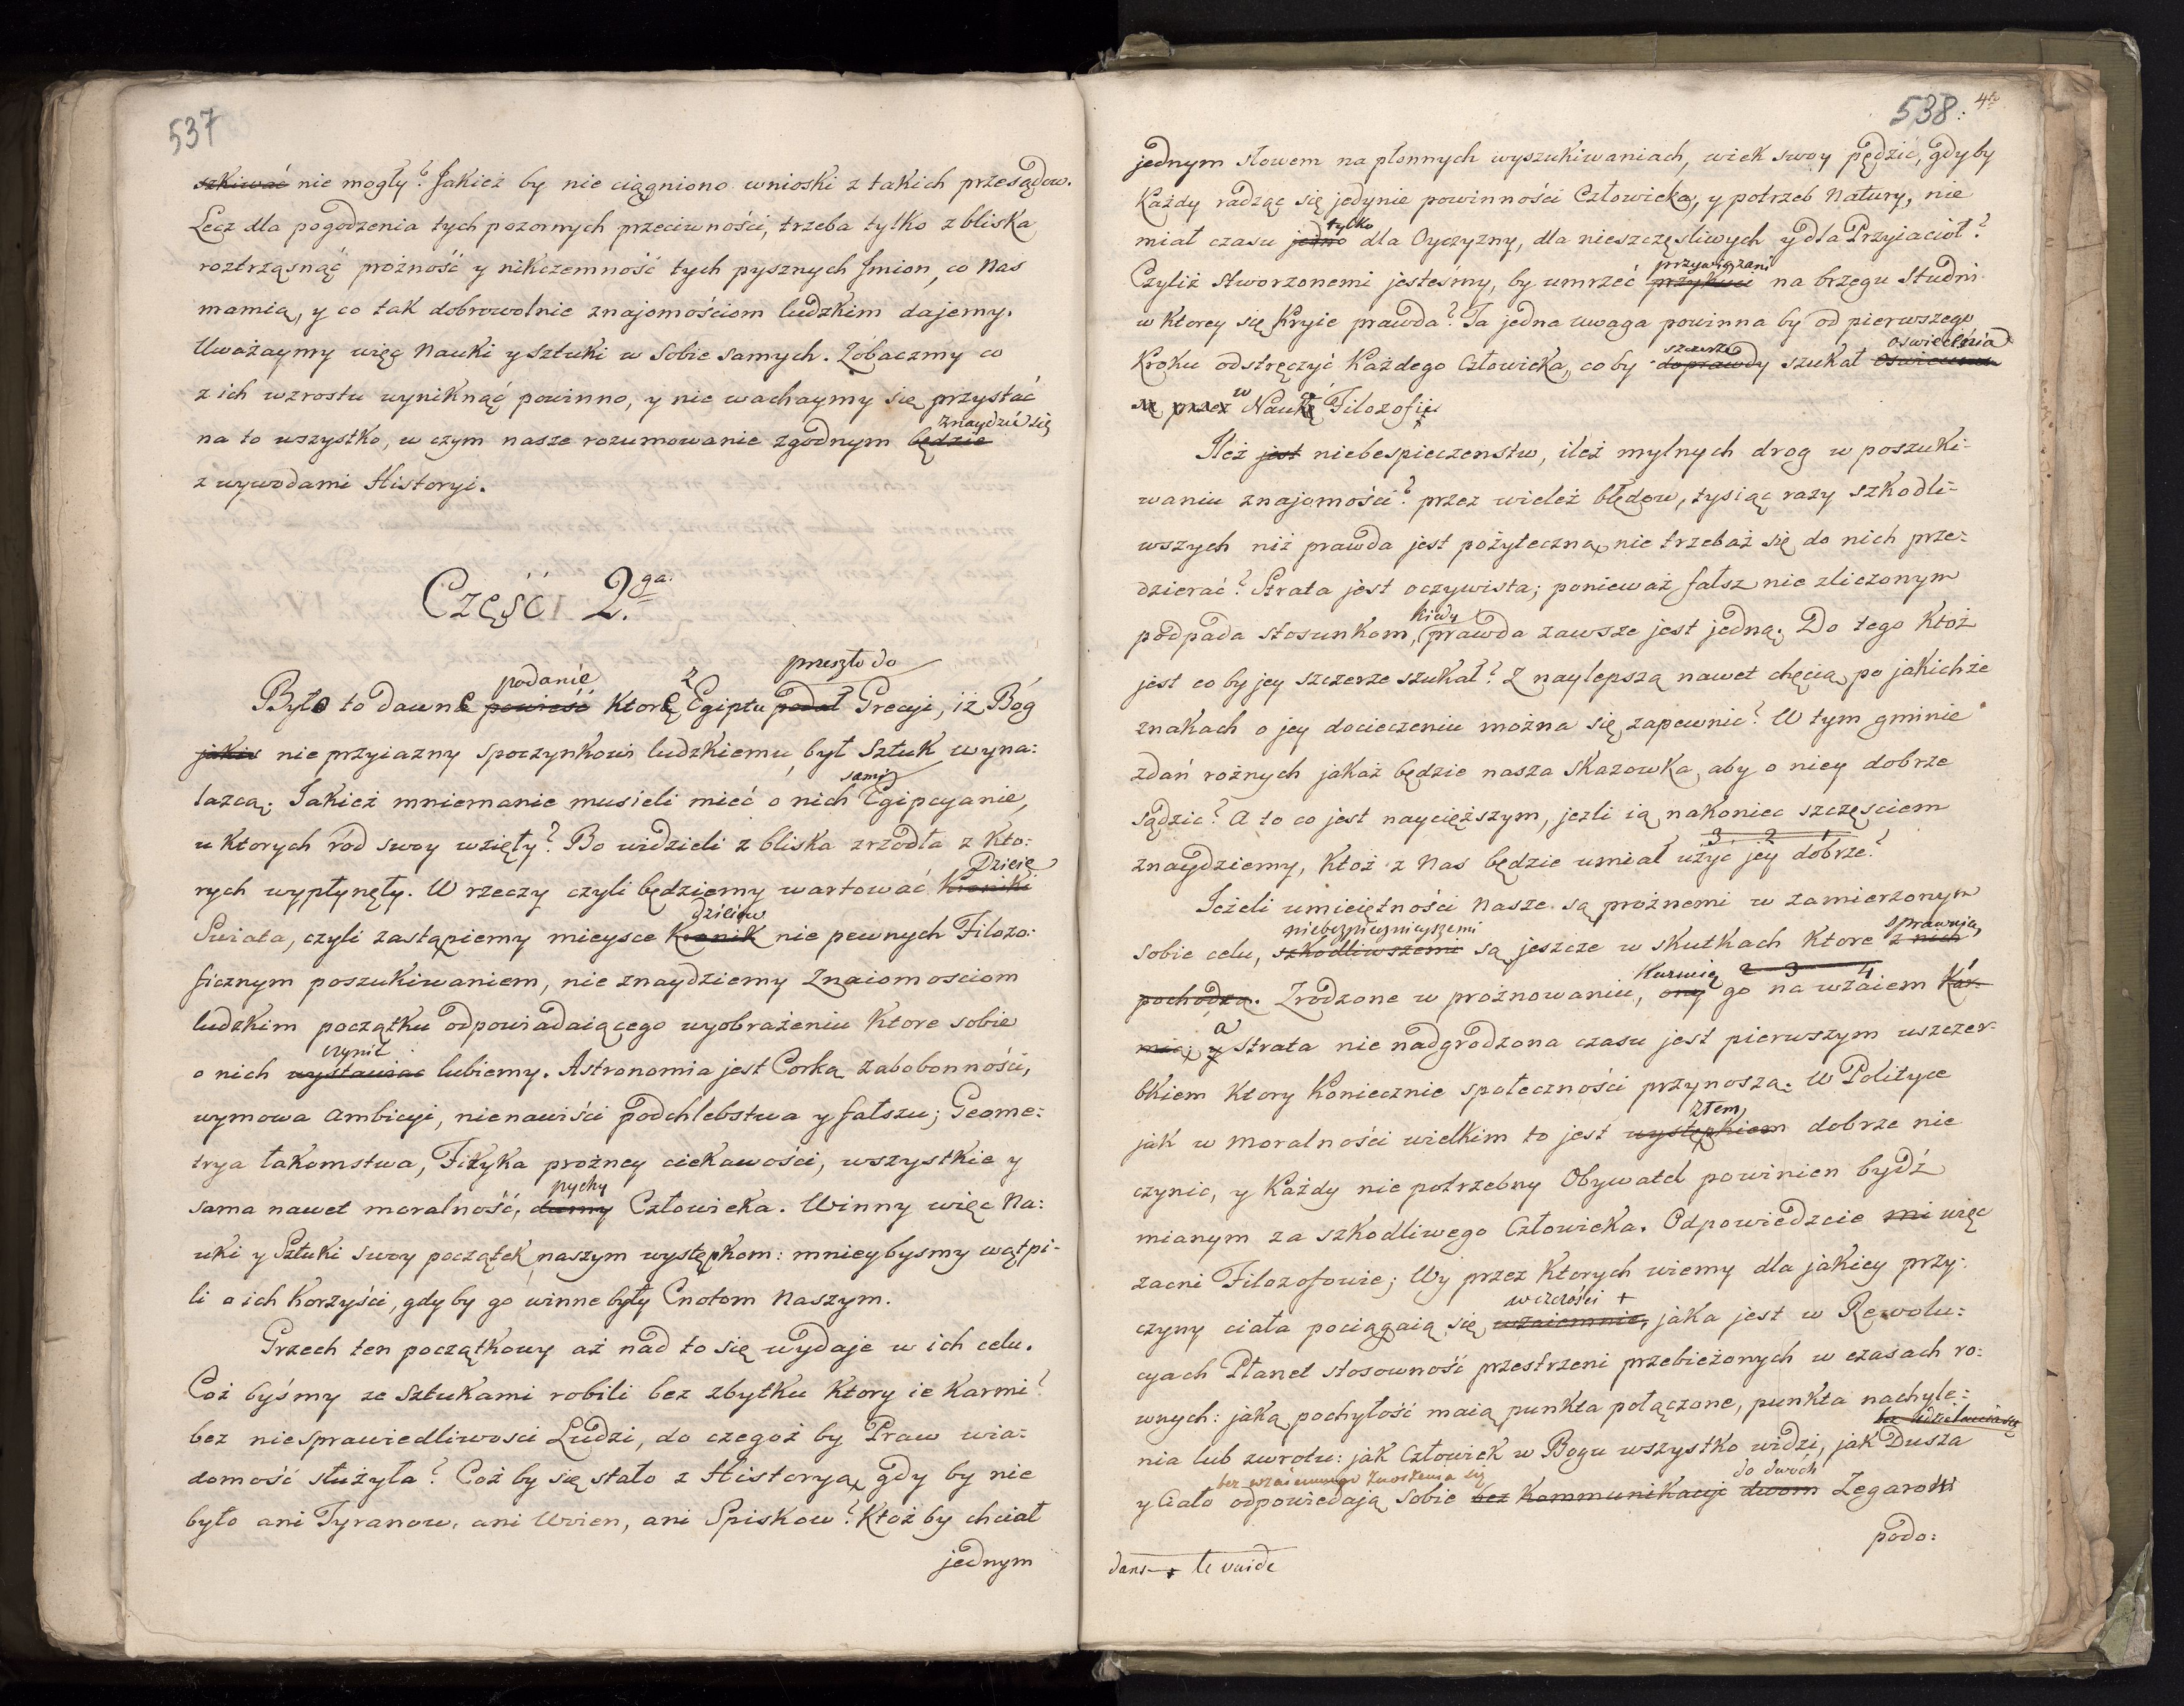 537
szkiwać nie mogły? Jakież by nie ciągniono wnioski z takich przesądow.
Lecz dla pogodzenia tych pozornych przeciwności, trzeba tylko z bliska
roztrząsnąć prożność y nikczemność tych pysznych Jmion, co nas
mamią, y co tak dobrowolnie znajomościom ludzkim dajemy.
Uważaymy więc Nauki y sztuki w sobie samych. Zobaczmy co
z ich wzrostu wyniknąć powinno, y nie wachaymy się przystać
znaydzie się
na to wszystko, w czym nasze rozumowanie zgodnym będzie
z wywodami Historyi.
Część 2.ga.
podanie z przeszło do
Było to dawne powieść ktore Egiptu podał Grecyi, iż Bóg
jakis nie przyiazny spoczynkowi ludzkiemu był Sztuk wyna:
sami
lazcą. Jakież mniemanie musieli mieć o nich Egipcyanie,
u ktorych rod swoy wzięły? Bo widzieli z bliska zrzodła z kto:
Dzieie
rych wypłynęły. W rzeczy czyli będziemy wartować Kroniki
dzieiow
Swiata, czyli zastąpiemy mieysce Kronik nie pewnych Filozo:
ficznym poszukiwaniem, nie znaydziemy Znaiomosciom
ludzkim początku odpowiadaiącego wyobrażeniu ktore sobie
czynić
o nich wystawiac lubiemy. Astronomia jest Corką zabobonności,
wymowa ambicyi, nienawiści podchlebstwa y fałszu; Geome:
trya łakomstwa, Fizyka prożney ciekawości, wszystkie y
pychy
sama nawet moralność, dumy Człowieka. Winny więc Na:
uki y Sztuki swoy początek naszym występkom: mnieybysmy wątpi-
li o ich korzyści, gdy by go winne były Cnotom naszym.
Grzech ten początkowy aż nad to się wydaje w ich celu.
Coż byśmy ze Sztukami robili bez zbytku ktory ie karmi?
bez niesprawiedliwosci Ludzi, do czegoż by Praw wia:
domość służyła? Coż by się stało z Historyą, gdy by nie
było ani Tyranow, ani Woien, ani Spiskow? Ktoż by chciał
jednym
538. 4to
jednym słowem na płonnych wyszukiwaniach, wiek swoy pędzić, gdyby
Każdy radząc się jedynie powinności Człowieka, y potrzeb Natury, nie
tylko
miał czasu jedno dla Oyczyzny, dla nieszczęsliwych y dla Przyiacioł?
przywiązani
Czyliż stworzonemi jesteśmy, by umrzeć przykuci na brzegu Studni
w ktorey się kryie prawda? Ta jedna uwaga powinna by od pierwszego
szczerze oswiecenia
Kroku odstręczyć Każdego Człowieka, co by doprawdy szukał oswiecenia
w
się przez Naukę Filozofii
Ileż jest niebespieczenstw, ileż mylnych drog w poszuki-
waniu znajomości? przez wieleż błędow, tysiąc razy szkodli-
wszych niż prawda jest pożyteczna, nie trzebaż się do nich prze-
dzierać? Strata jest oczywista; ponieważ fałsz nie zliczonym
kiedy
podpada stosunkom, prawda zawsze jest jedną. Do tego ktoż
jest co by jey szczerze szukał? Z naylepszą nawet chęcią po jakichże
znakach o jey docieczeniu można się zapewnić? W tym gminie
zdań rożnych jakaż będzie nasza skazowka, aby o niey dobrze
sądzic? A to co jest naycięższym, jezli ią nakoniec szczęsciem
3 2 1
znaydziemy, ktoż z nas będzie umiał użyć jey dobrze?
Jeżeli umieiętności nasze są prożnemi w zamierzonym
niebezpiecznieyszemi sprawuią,
sobie celu, szkodliwszemi są jeszcze w skutkach ktore z nich
Karmią 2 3 4
pochodzą. Zrodzone w prożnowaniu, ony go na wzaiem Kar-
a
mią; y strata nie nadgrodzona czasu jest pierwszym uszczer-
bkiem ktory koniecznie społeczności przynoszą. W Polityce
złem,
jak w moralności wielkim to jest występkiem dobrze nie
czynic, y Każdy nie potrzebny Obywatel powinien bydź
mianym za szkodliwego Człowieka. Odpowiedzcie mi więc
zacni Filozofowie; Wy przez ktorych wiemy dla jakiey przy-
w czczości +
czyny ciała pociągaią się wzaiemnie, jaka jest w Rewolu:
cyach Planet stosowność przestrzeni przebieżonych w czasach ro:
wnych: jaką pochyłość maią punkta połączone, punkta nachyle:
bez udzielania się
nia lub zwrotu: jak Człowiek w Bogu wszystko widzi, jak Dusza
bez wzaiemnego znoszenia się do dwóch
y Ciało odpowiedają sobie bez Kommunikacyi dwom Zegarow
podo:
dans + le vuide